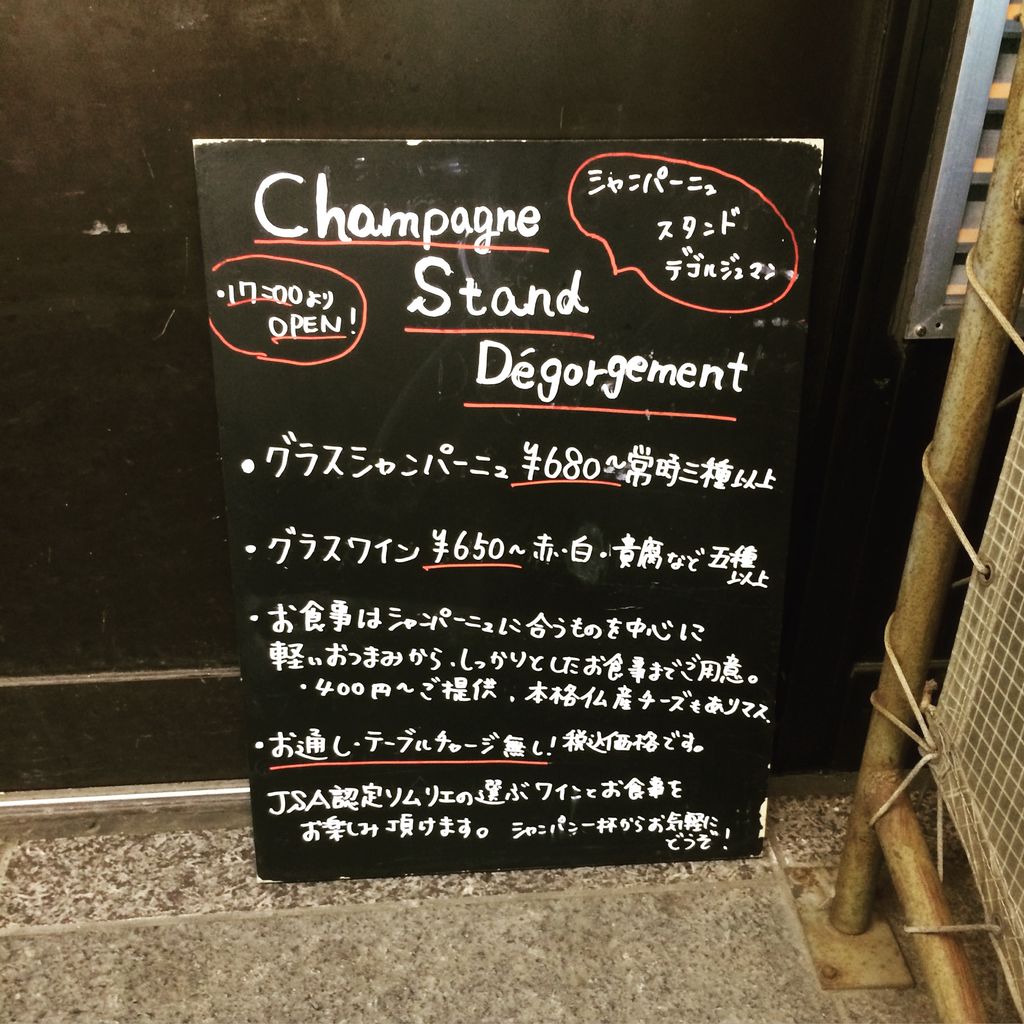 Champagne
シャンパーニュ
スタンド
デゴルジュマン
・17:00より
OPEN!
Stand
Dégorgement
・グラスシャンパーニュ ¥680〜常時三種以上
・グラスワイン ¥650〜赤・白・貴腐など五種
以上
・お食事はシャンパーニュに合うものを中心に
軽いおつまみから、しっかりとしたお食事までご用意。
・400円〜ご提供、本格仏産チーズもありマス。
・お通し・テーブルチャージ無し! 税込価格です。
JSA認定ソムリエの選ぶワインとお食事を
お楽しみ頂けます。 シャンパン一杯からお気軽に
どうぞ!